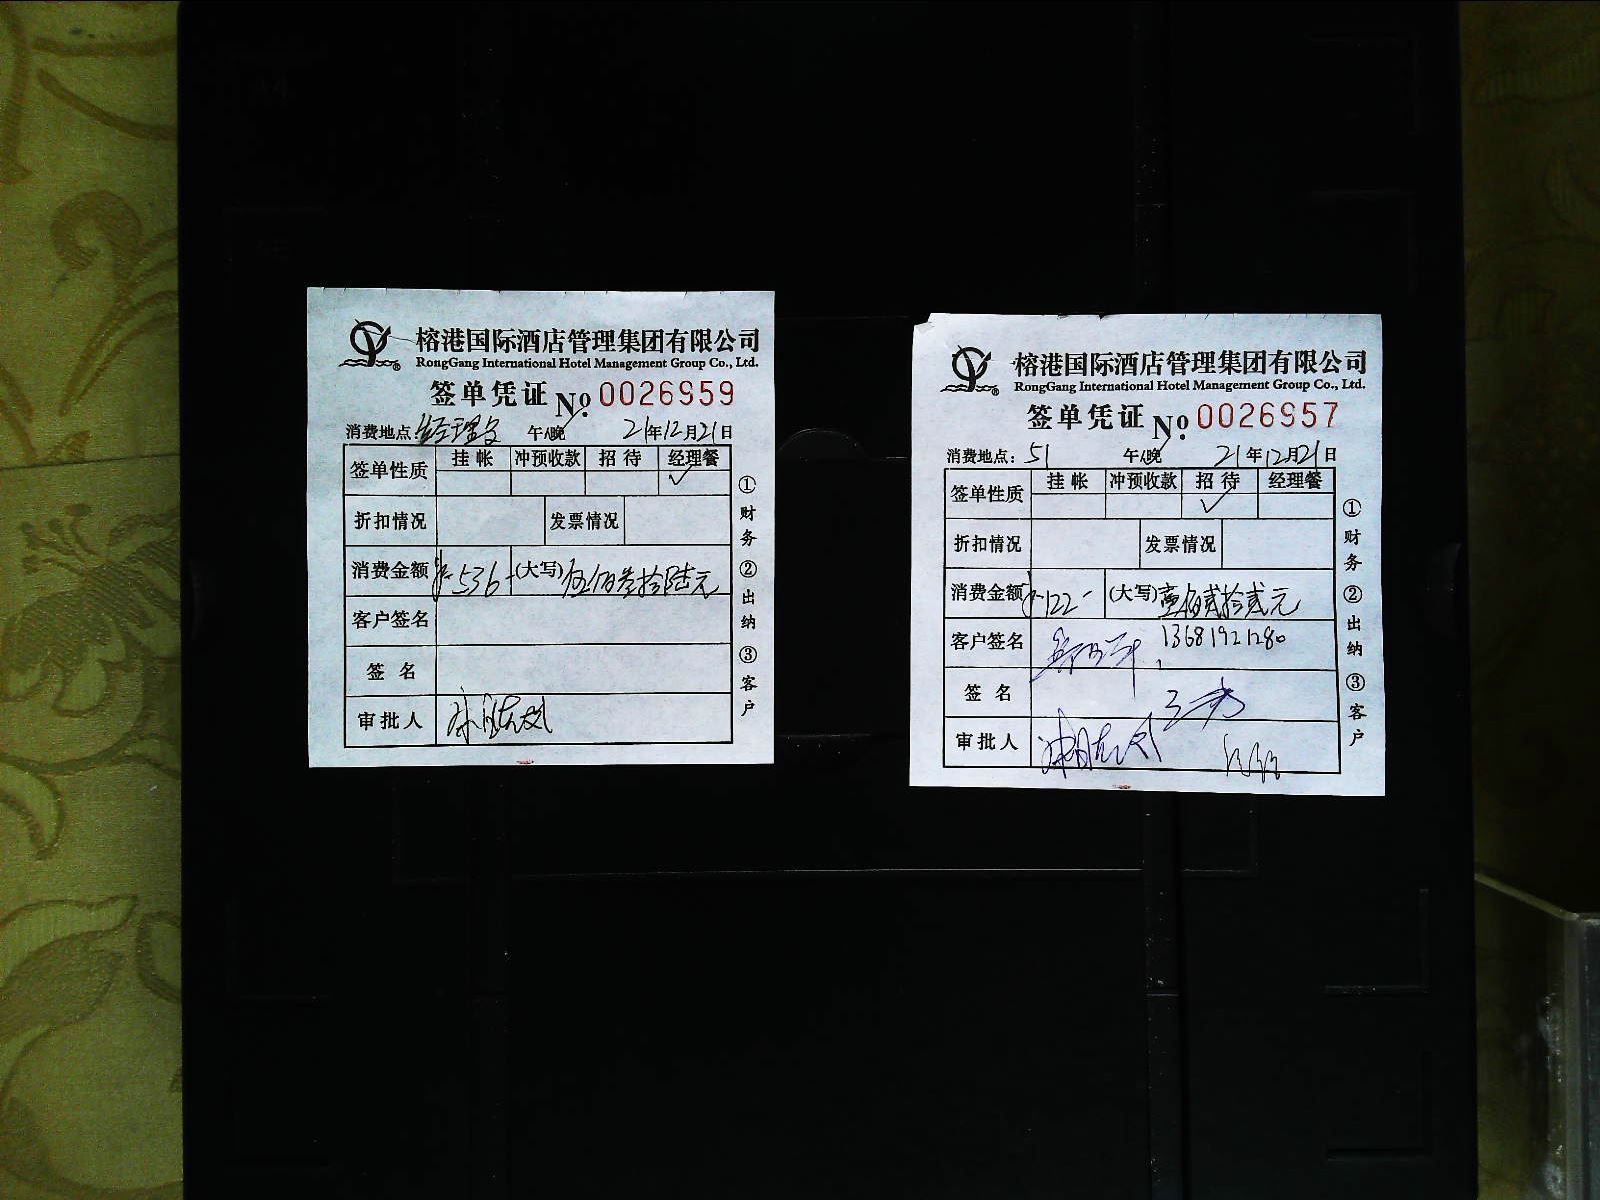 榕港国际酒店管理集团有限公司
RongGang International Hotel Management Group Co., Ltd.
签单凭证 №. 0026959
消费地点: 经理 午/晚 21年12月21日
签单性质 挂帐 冲预收款 招待 经理餐 ✓
折扣情况 发票情况
消费金额 ¥536- (大写) 伍佰叁拾陆元
客户签名
签名
审批人
①财务 ②出纳 ③客户
榕港国际酒店管理集团有限公司
RongGang International Hotel Management Group Co., Ltd.
签单凭证 №. 0026957
消费地点: 51 午/晚 21年12月21日
签单性质 挂帐 冲预收款 招待 ✓ 经理餐
折扣情况 发票情况
消费金额 ¥122- (大写) 壹佰贰拾贰元
客户签名 13681921280
签名
审批人
①财务 ②出纳 ③客户